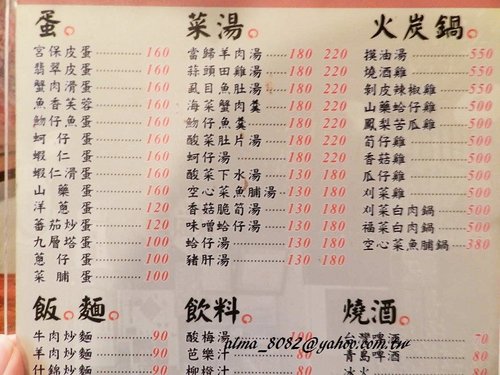 蛋
宮保皮蛋 160
翡翠皮蛋 160
蟹肉滑蛋 160
魚香芙蓉 160
魩仔魚蛋 160
蚵仔蛋 160
蝦仁蛋 160
蝦仁滑蛋 160
山藥蛋 160
洋蔥蛋 120
番茄炒蛋 120
九層塔蛋 100
蔥仔蛋 100
菜脯蛋 100
菜湯
當歸羊肉湯 180 220
蒜頭田雞湯 180 220
虱目魚肚湯 180 220
海菜蟹肉羹 180 220
魩仔魚羹 180 220
酸菜肚片湯 180 220
蚵仔湯 180 220
酸菜下水湯 130 180
空心菜魚脯湯 130 180
香菇脆筍湯 130 180
味噌蛤仔湯 130 180
蛤仔湯 130 180
豬肝湯 130 180
火炭鍋
摸油湯 550
燒酒雞 550
剝皮辣椒雞 550
山藥蛤仔雞 500
鳳梨苦瓜雞 500
筍仔雞 500
香菇雞 500
瓜仔雞 500
刈菜雞 500
刈菜白肉鍋 500
福菜白肉鍋 500
空心菜魚脯鍋 380
飯．麵
牛肉炒麵 90
羊肉炒麵 90
什錦炒麵
飲料
酸梅湯 100
芭樂汁 80
柳橙汁
燒酒
台灣啤酒 70
青島啤酒 80
冰火 80
pima_8082@yahoo.com.tw